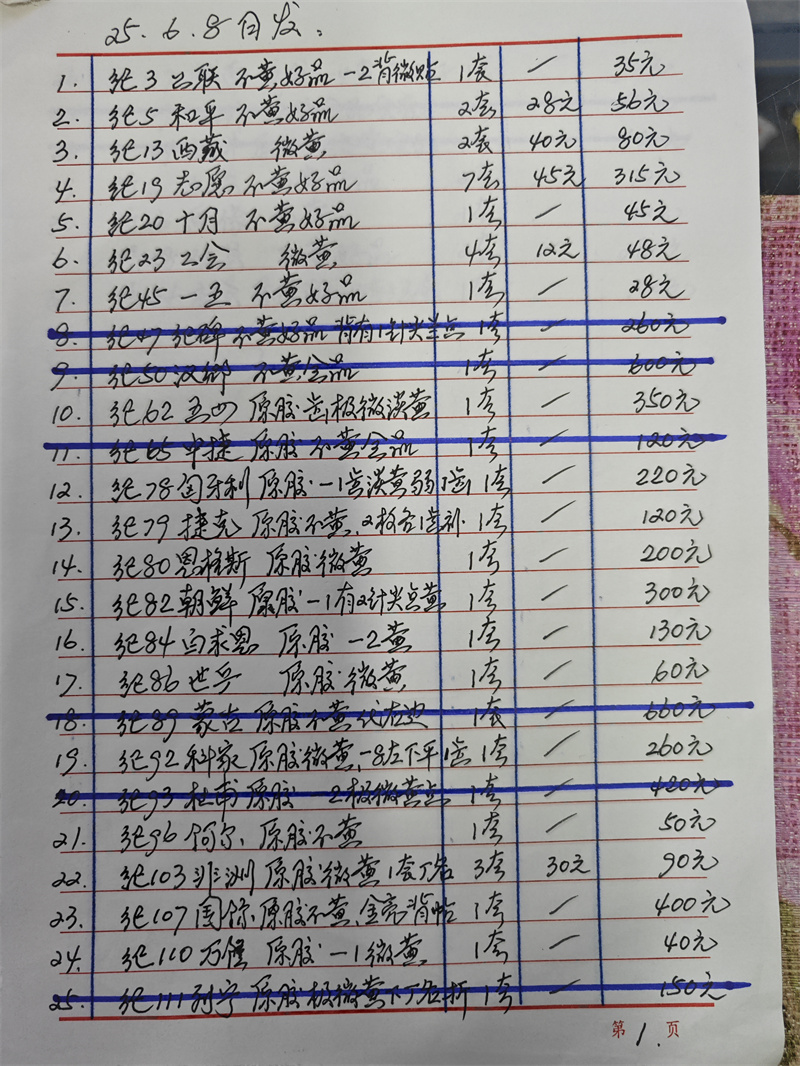 25.6.8日发:
1. 纪3 公联 不黄好品 -2背微贴 1套 — 35元
2. 纪5 和平 不黄好品 2套 28元 56元
3. 纪13 西藏 微黄 2套 40元 80元
4. 纪19 志愿 不黄好品 7套 45元 315元
5. 纪20 十月 不黄好品 1套 — 45元
6. 纪23 工会 微黄 4套 12元 48元
7. 纪45 一五 不黄好品 1套 — 28元
8. 纪47 纪碑 不黄好品 背有1针尖半点 1套 — 260元
9. 纪50 汉卿 不黄全品 1套 — 600元
10. 纪62 五四 原胶齿极微淡黄 1套 — 350元
11. 纪65 中捷 原胶不黄全品 1套 — 120元
12. 纪78 匈牙利 原胶-1齿淡黄弱1齿 1套 — 220元
13. 纪79 捷克 原胶不黄,2枚各1齿补 1套 — 120元
14. 纪80 恩格斯 原胶微黄 1套 — 200元
15. 纪82 朝鲜 原胶-1有2针尖点黄 1套 — 300元
16. 纪84 白求恩 原胶 -2黄 1套 — 130元
17. 纪86 世乒 原胶微黄 1套 — 60元
18. 纪89 蒙古 原胶不黄 1套 — 660元
19. 纪92 科家 原胶微黄,-8左下平1齿 1套 — 260元
20. 纪93 杜甫 原胶 -2极微黄点 1套 — 420元
21. 纪96 阿尔 原胶不黄 1套 — 50元
22. 纪103 非洲 原胶微黄1套丁名 3套 30元 90元
23. 纪107 国馀 原胶不黄,金亮背帖 1套 — 400元
24. 纪110 万隆 原胶 -1微黄 1套 — 40元
25. 纪111 列宁 原胶极微黄 下厂名折 1套 — 150元
第 1. 页